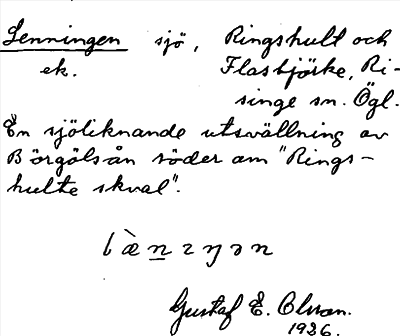 Lenningen sjö, Ringshult och
ek. Flasbjörke, Ri-
singe sn. Ögl.
En sjöliknande utsvällning av
Börgölsån söder om "Rings-
hulte skval".
Gustaf E. Olsson.
1926.